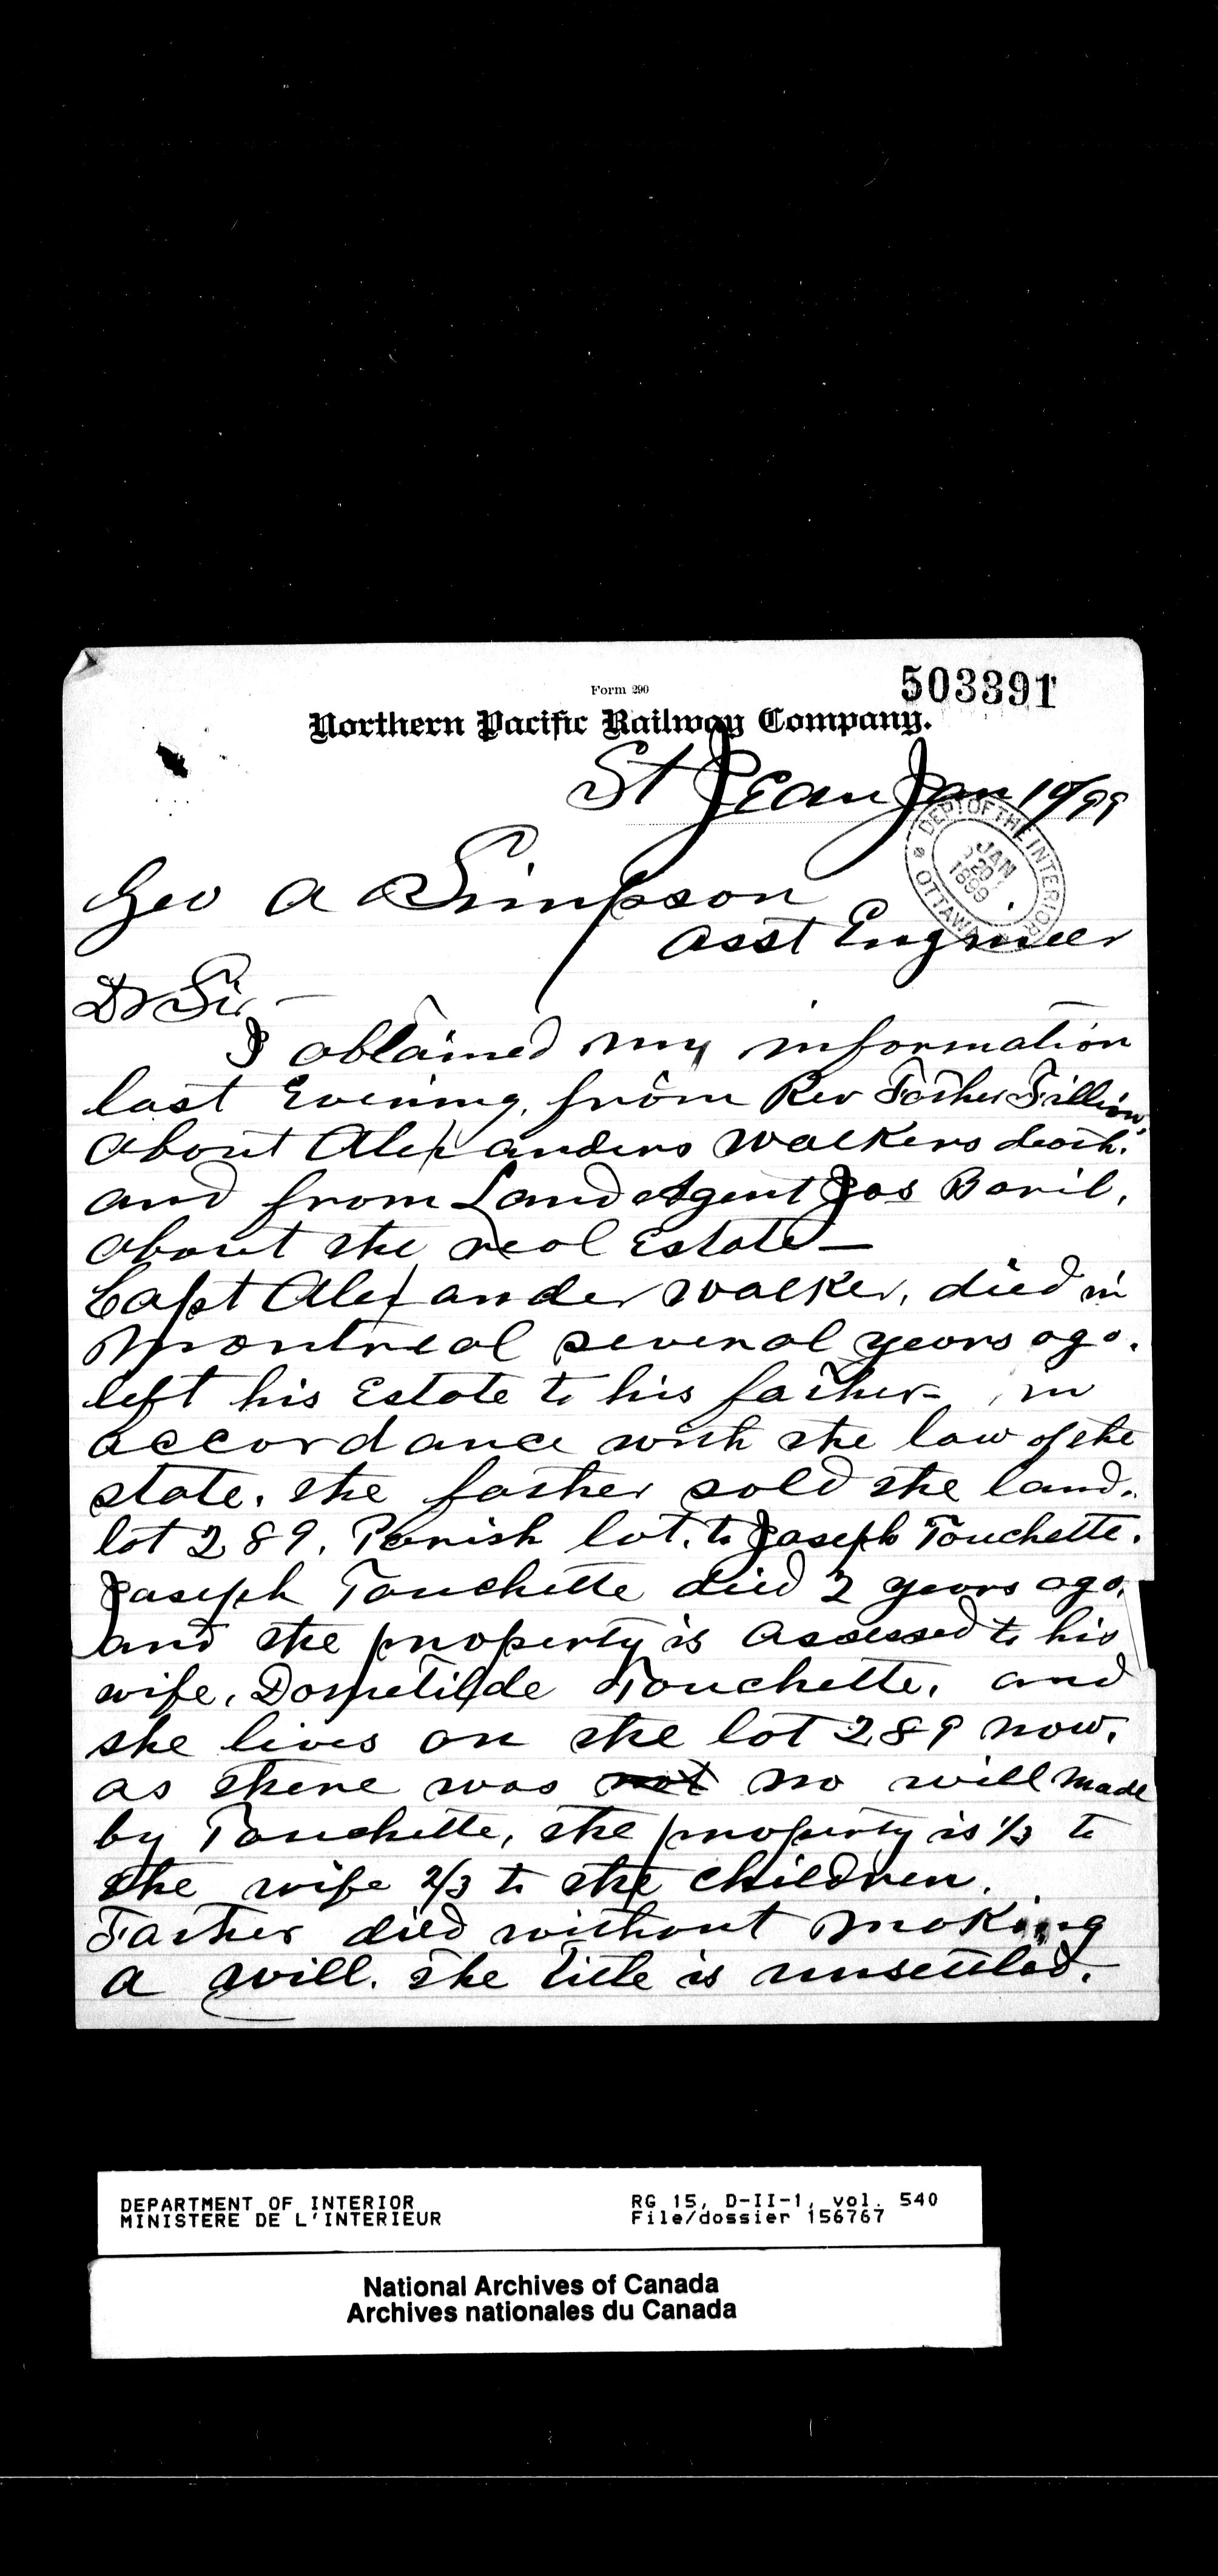 503391
Form 290
Northern Pacific Railway Company.
St Jean Jan 10/99
DEPT OF THE INTERIOR
JAN
20
1899
OTTAWA
Geo A Simpson
Asst Engineer
Dr Sir —
I obtained my information
last Evening, from Rev Father Fillion,
about Alexanders Walkers death.
and from Land Agent Jos Baril,
about the real Estate —
Capt Alexander Walker, died in
Montreal several years ago.
left his Estate to his father - in
accordance with the law of the
state. the father sold the land.
lot 289. Parish lot. to Joseph Touchette.
Joseph Touchette died 2 years ago.
and the property is assessed to his
wife, Dometilde Touchette, and
she lives on the lot 289 now.
as there was not no will made
by Touchette, the property is 1/3 to
the wife 2/3 to the children.
Father died without making
a will. the title is unsettled.
DEPARTMENT OF INTERIOR
MINISTERE DE L'INTERIEUR
RG 15, D-II-1, vol. 540
File/dossier 156767
National Archives of Canada
Archives nationales du Canada